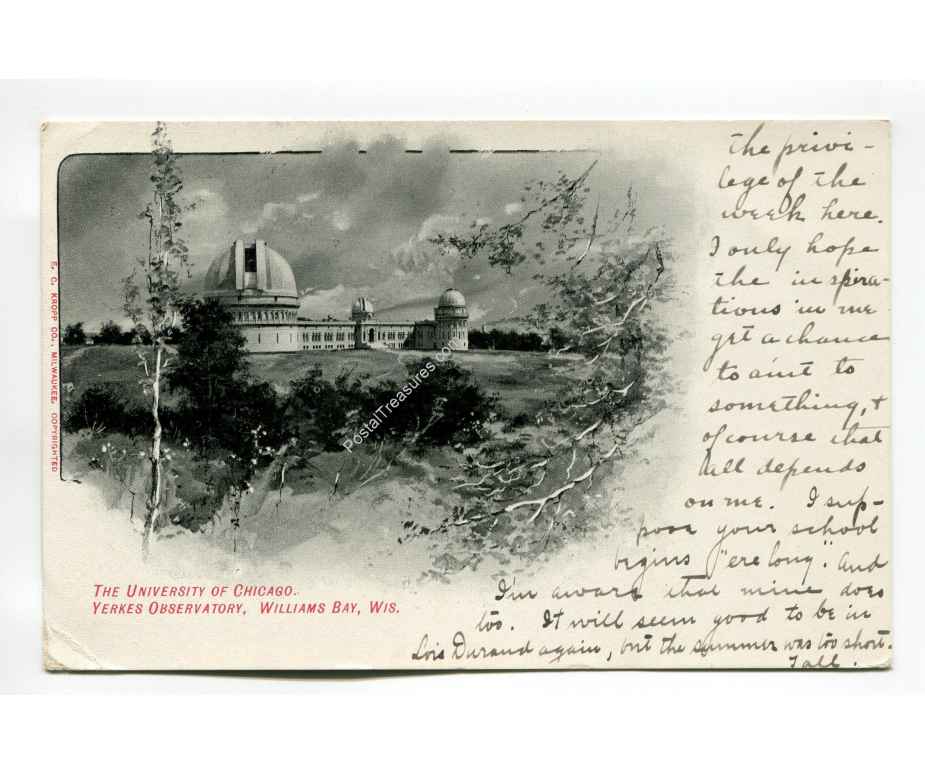 the privi-
lege of the
week here.
I only hope
the inspira-
tions in me
get a chance
to aint to
something, +
of course that
all depends
on me. I sup-
pose your school
begins "ere long". And
I'm aware that mine does
too. It will seem good to be in
Lois Durand again, but the summer was too short.
E. C. KROPP CO., MILWAUKEE. COPYRIGHTED
PostalTreasures.com
THE UNIVERSITY OF CHICAGO.
YERKES OBSERVATORY, WILLIAMS BAY, WIS.